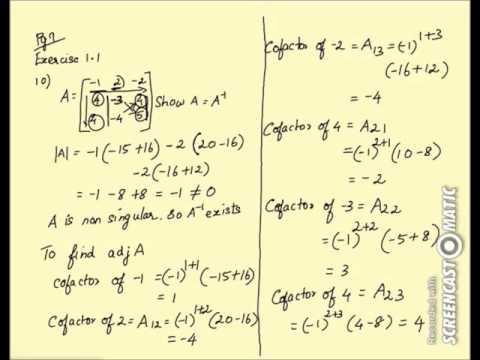 Pg 7
Exercise 1.1
10)
A = [ -1 2 -2
4 -3 4
4 -4 5 ] Show A = A⁻¹
|A| = -1(-15+16) -2(20-16)
-2(-16+12)
= -1 -8 +8 = -1 ≠ 0
A is non singular. So A⁻¹ exists
To find adj A
cofactor of -1 = (-1)¹⁺¹ (-15+16)
= 1
Cofactor of 2 = A₁₂ = (-1)¹⁺² (20-16)
= -4
Cofactor of -2 = A₁₃ = (-1)¹⁺³
(-16+12)
= -4
Cofactor of 4 = A₂₁
= (-1)²⁺¹ (10-8)
= -2
Cofactor of -3 = A₂₂
= (-1)²⁺² (-5+8)
= 3
Cofactor of 4 = A₂₃
= (-1)²⁺³ (4-8) = 4
Recorded with
SCREENCAST-O-MATIC